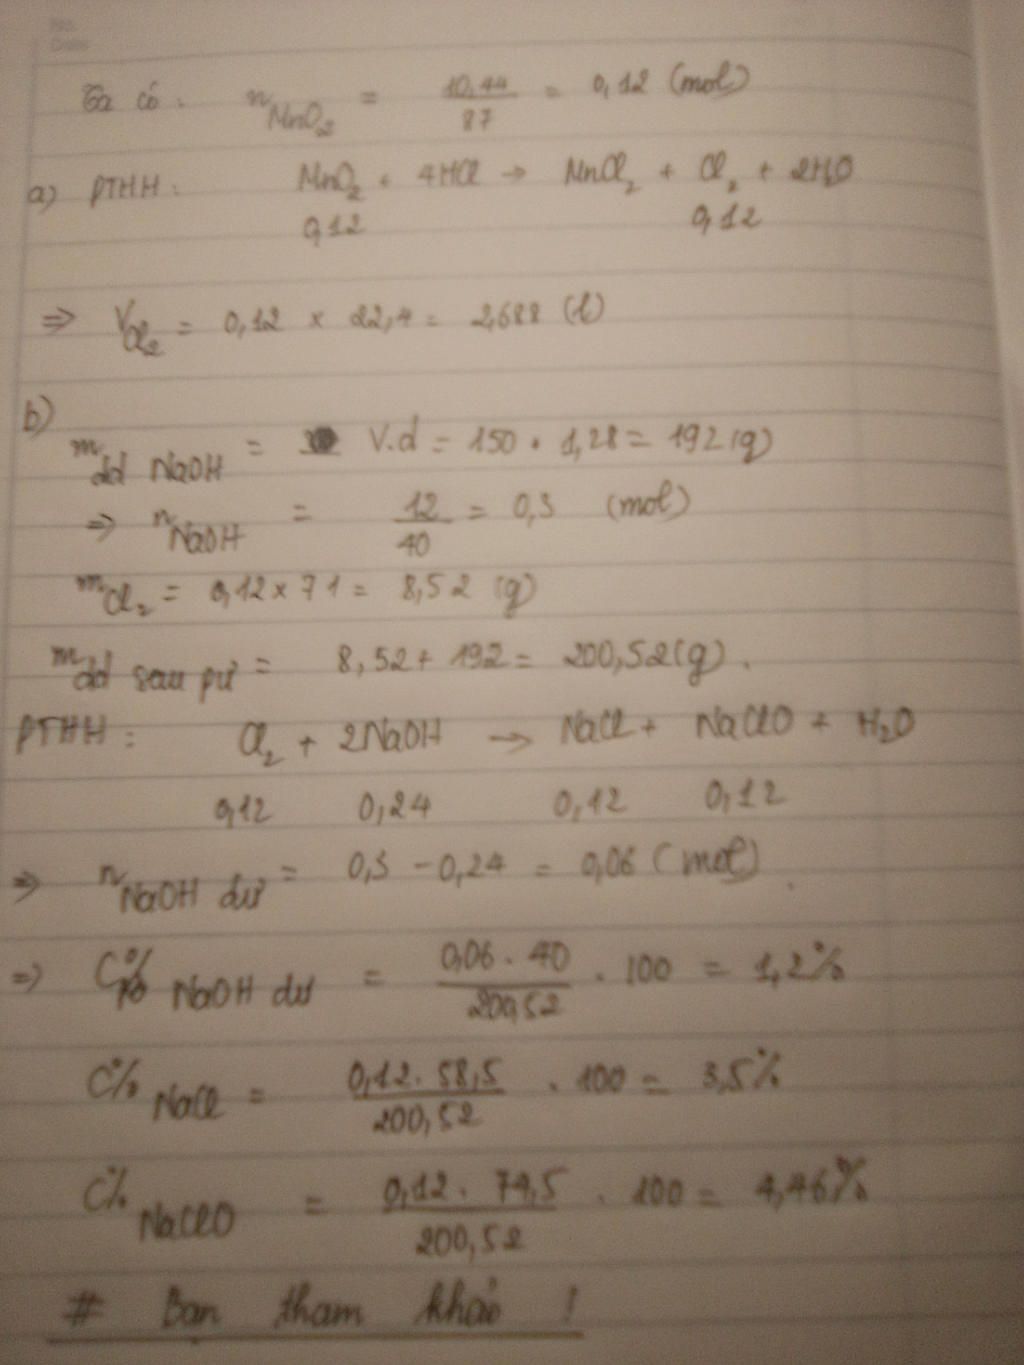 No.
Date
Ta có: n MnO₂ = 10,44/87 = 0,12 (mol)
a) PTHH: MnO₂ + 4HCl → MnCl₂ + Cl₂ + 2H₂O
0,12 0,12
⇒ V Cl₂ = 0,12 × 22,4 = 2,688 (l)
b)
m dd NaOH = V.d = 150 . 1,28 = 192 (g)
⇒ n NaOH = 12/40 = 0,3 (mol)
m Cl₂ = 0,12 × 71 = 8,52 (g)
m dd sau pư = 8,52 + 192 = 200,52 (g).
PTHH: Cl₂ + 2NaOH → NaCl + NaClO + H₂O
0,12 0,24 0,12 0,12
⇒ n NaOH dư = 0,3 - 0,24 = 0,06 (mol).
⇒ C% NaOH dư = 0,06 . 40/200,52 . 100 = 1,2%
C% NaCl = 0,12 . 58,5/200,52 . 100 = 3,5%
C% NaClO = 0,12 . 74,5/200,52 . 100 = 4,46%
# Bạn tham khảo !